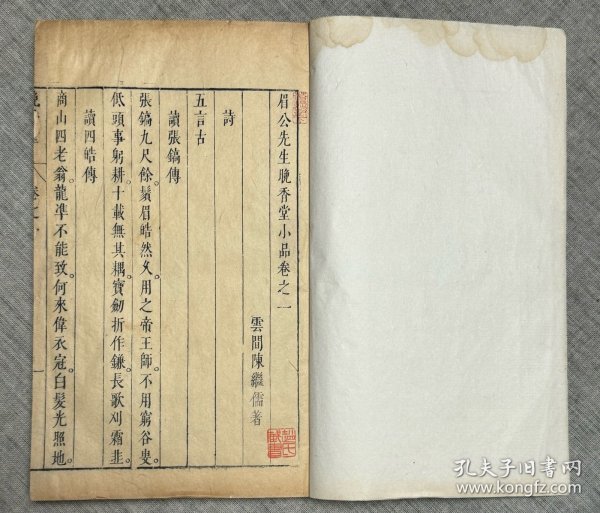 眉公先生晚香堂小品卷之一
雲間陳繼儒著
詩
五言古
讀張鎬傳
張鎬九尺餘。鬚眉皓然久。用之帝王師。不用窮谷叟。
低頭事躬耕。十載無其耦。寶劒折作鎌。長歌刈霜韭。
讀四皓傳
商山四老翁。龍準不能致。何來偉衣冠。白髮光照地。
孔夫子旧书网
www.kongfz.com